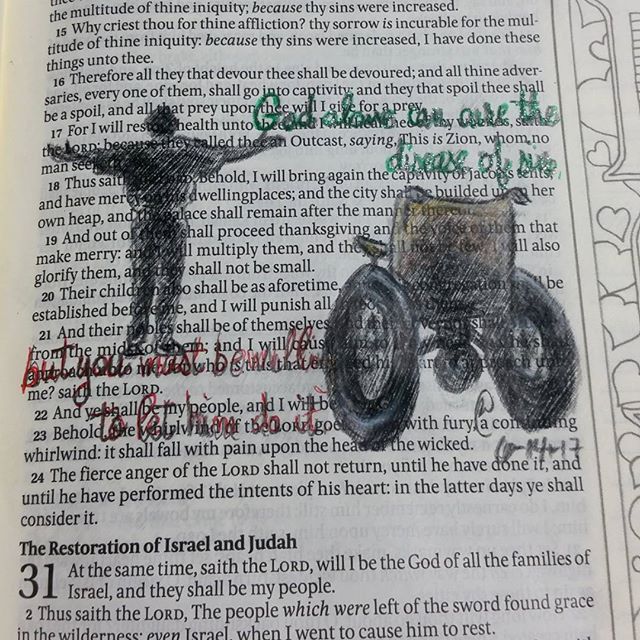 the multitude of thine iniquity; because thy sins were increased.
15 Why criest thou for thine affliction? thy sorrow is incurable for the mul-
titude of thine iniquity: because thy sins were increased, I have done these
things unto thee.
16 Therefore all they that devour thee shall be devoured; and all thine adver-
saries, every one of them, shall go into captivity; and they that spoil thee shall
be a spoil, and all that prey upon thee will I give for a prey.
God alone can cure the
17 For I will restore health unto thee, and I will heal thee of thy wounds, saith
the LORD; because they called thee an Outcast, saying, This is Zion, whom no
man seeketh
disease of sin
18 Thus saith the LORD; Behold, I will bring again the captivity of Jacob's tents,
and have mercy on his dwellingplaces; and the city shall be builded upon her
own heap, and the palace shall remain after the manner thereof.
19 And out of them shall proceed thanksgiving and the voice of them that
make merry: and I will multiply them, and they shall not be few; I will also
glorify them, and they shall not be small.
20 Their children also shall be as aforetime, congregation shall be
established before me, and I will punish all
21 And their nobles shall be of themselves, and
from the midst of them; and I will cause
but you must be willing
who is this that
me? saith the LORD.
22 And ye shall be my people, and I will be
to let him do it
23 Behold, the whirlwind of the LORD goeth with fury, a continuing
whirlwind: it shall fall with pain upon the head of the wicked.
24 The fierce anger of the LORD shall not return, until he have done it, and
until he have performed the intents of his heart: in the latter days ye shall
consider it.
The Restoration of Israel and Judah
31 At the same time, saith the LORD, will I be the God of all the families of
Israel, and they shall be my people.
2 Thus saith the LORD, The people which were left of the sword found grace
in the wilderness; even Israel, when I went to cause him to rest.